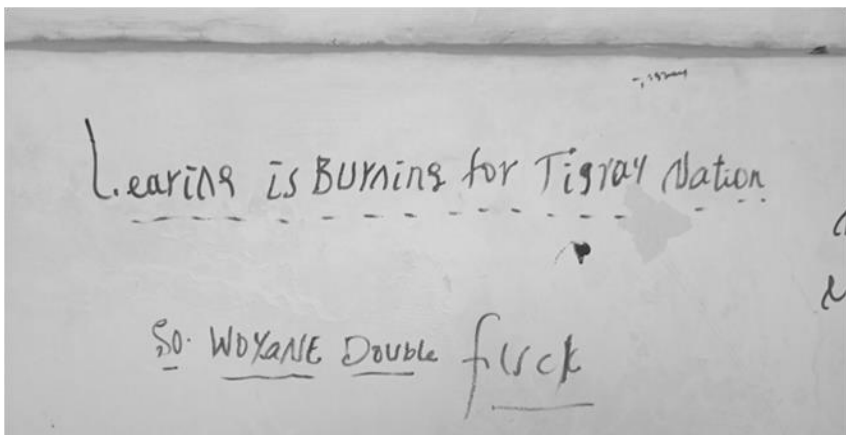 Learing is Burning for Tigray Nation
So. WOYANE Double fuck